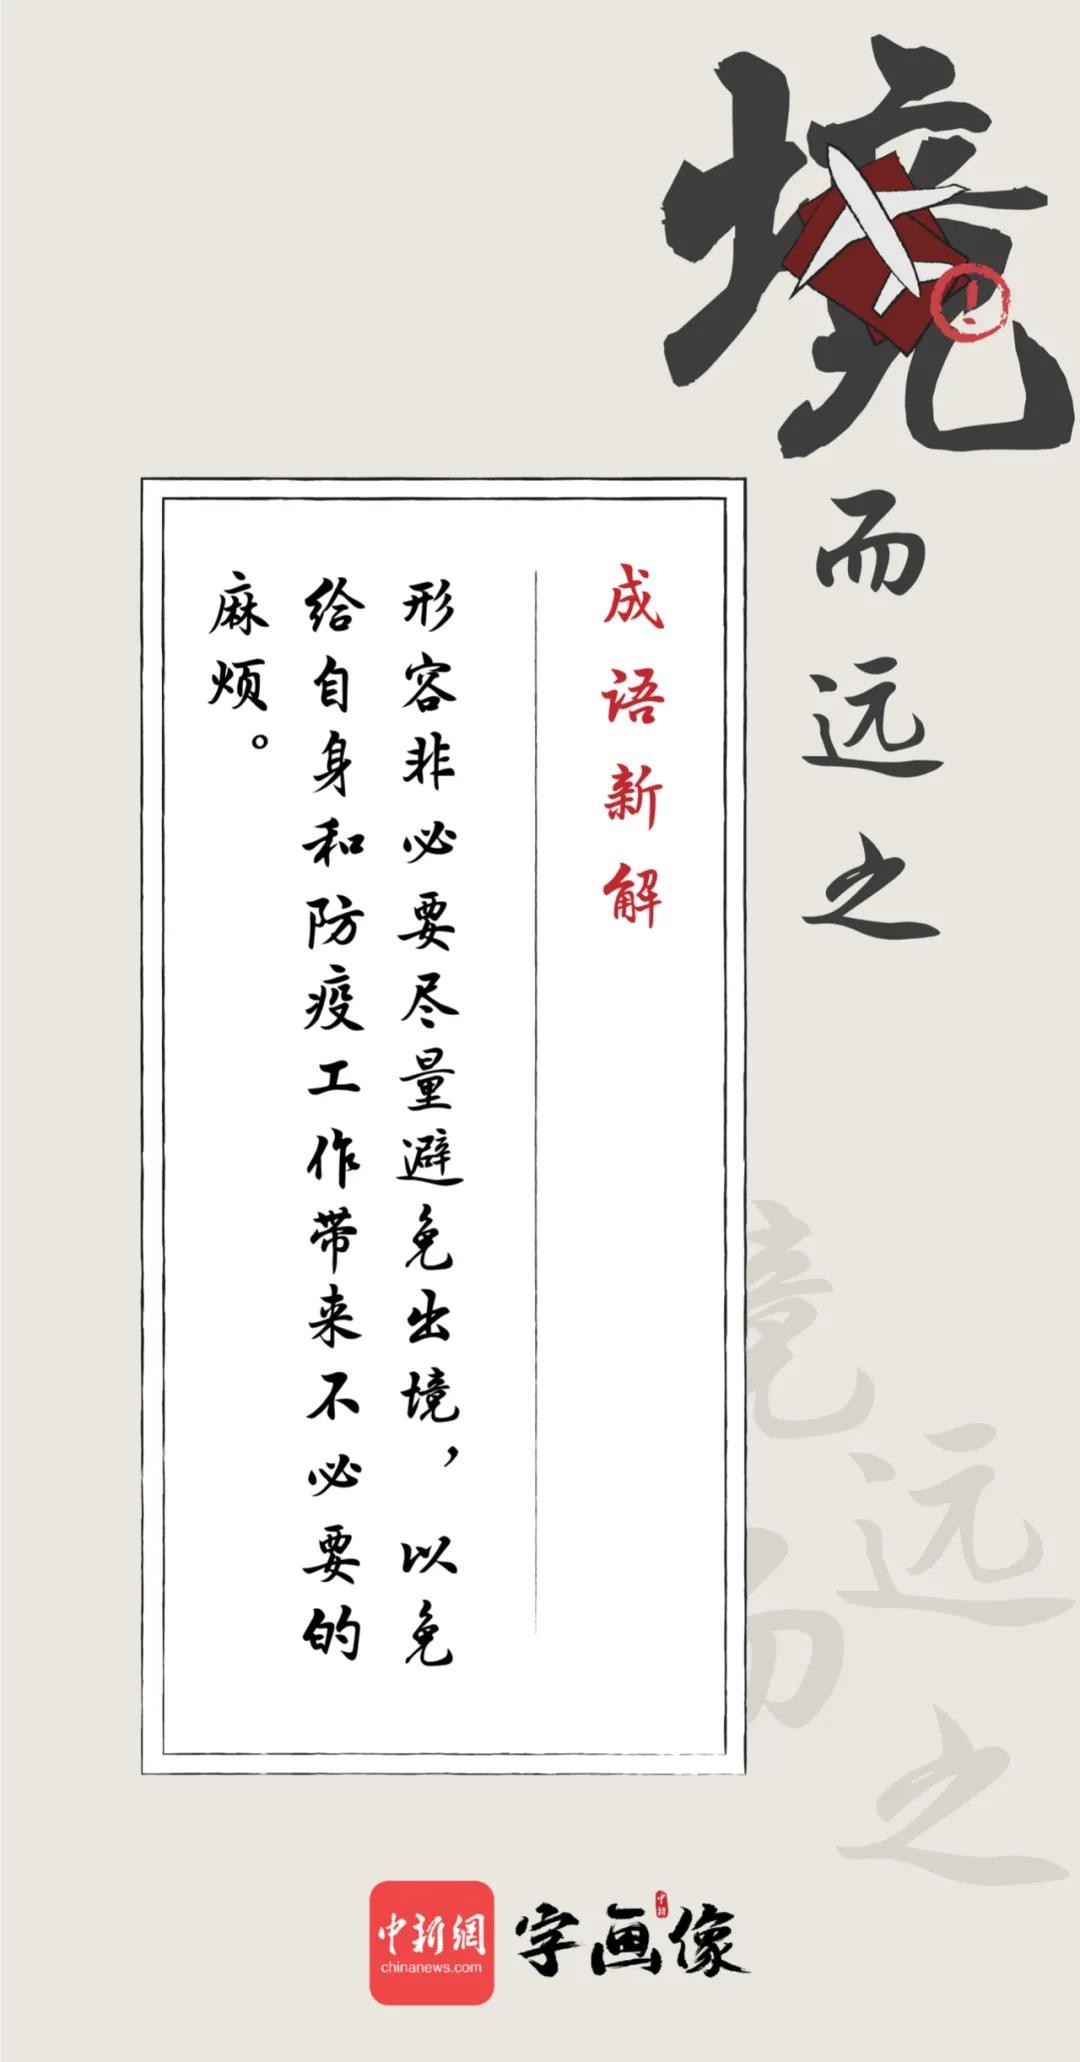 境而远之
成语新解
形容非必要尽量避免出境，以免
给自身和防疫工作带来不必要的
麻烦。
境而远之
中新網
chinanews.com
字画像